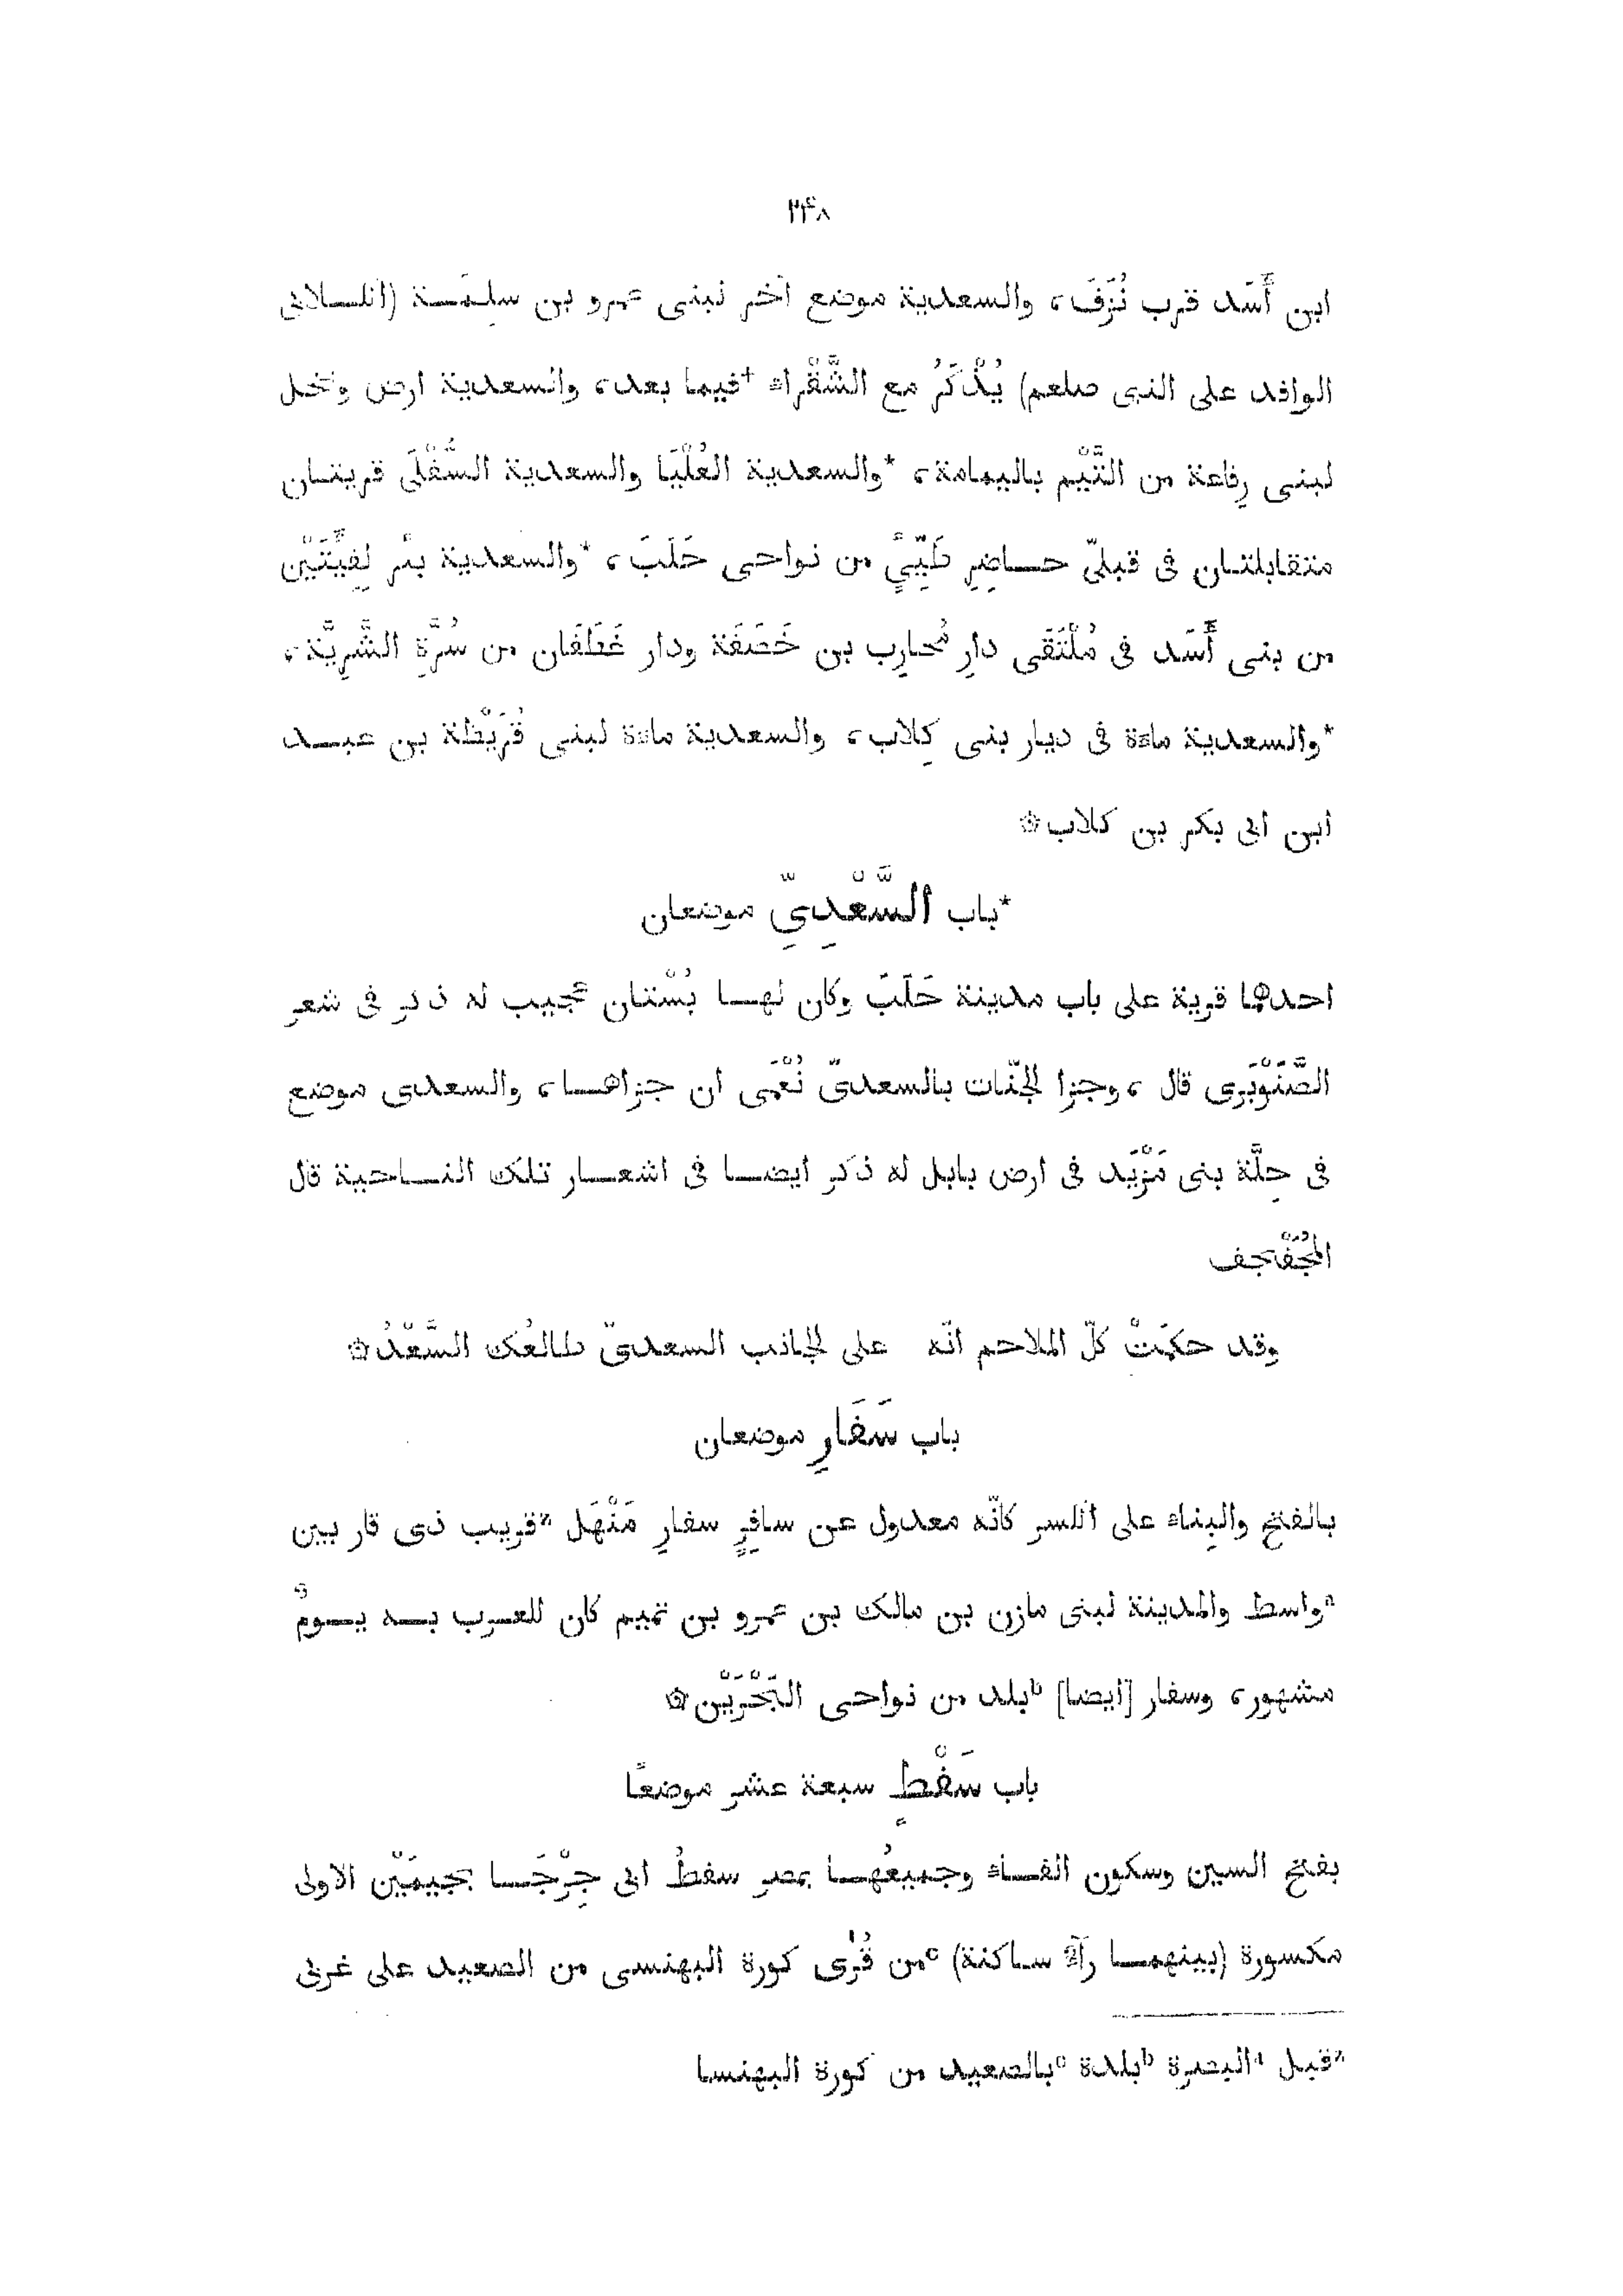 ٢٤٨
ابن أَسَد قرب نُزَفَ، والسعدية موضع آخر لبنى عمرو بن سلِمَة (الكلابى
الوافد على النبى صلعم) يُذْكَرُ مع الشَّقْراء †فيما بعد، والسعدية ارض ونخل
لبنى رِفاعة من التَّيْم باليمامة، *والسعدية العُلْيَا والسعدية السُّفْلَى قريتان
متقابلتان فى قبلىّ حاضِرِ طَيِّئٍ من نواحى حَلَبَ، *والسعدية بئر لِفِئَتَيْن
من بنى أَسَد فى مُلْتَقَى دارِ مُحارِب بن خَصَفَة ودار غَطَفَان من سُرَّةِ الشَّرِبَّة،
*والسعدية ماءة فى ديار بنى كِلاب، والسعدية ماءة لبنى قُرَيْظة بن عبد
ابن ابى بكر بن كلاب۞
*باب اَلسَّعْدِىِّ موضعان
احدهما قرية على باب مدينة حَلَبَ وكان لها بُسْتان عجيب له ذكر فى شعر
الصَّنَوْبَرى قال، وجزا الجنّات بالسعدىّ نُعْمَى ان جزاها، والسعدى موضع
فى حِلَّة بنى مَزْيَد فى ارض بابل له ذكر ايضا فى اشعار تلك الناحية قال
وقد حكمَتْ كلّ الملاحم انّه على الجانب السعدىّ طالعُك السَّعْدُ۞
باب سَفَارِ موضعان
بالفتح والبِناء على الكسر كانّه معدول عن سافِرٍ سفارِ مَنْهَل *قريب ذى قار بين
ᵃواسط والمدينة لبنى مازن بن مالك بن عمرو بن تميم كان للعرب به يومٌ
مشهور، وسفار [ايضا] ᵇبلد من نواحى البَحْرَيْن۞
باب سَفْطٍ سبعة عشر موضعًا
بفتح السين وسكون الفاء وجميعُها بمصر سفطُ ابى جِرْجَا بجيمَيْن الاولى
مكسورة (بينهما راء ساكنة) ᶜمن قُرَى كورة البهنسى من الصعيد على غربى
*قبل ᵃالبصرة ᵇبلدة ᶜبالصعيد من كورة البهنسا